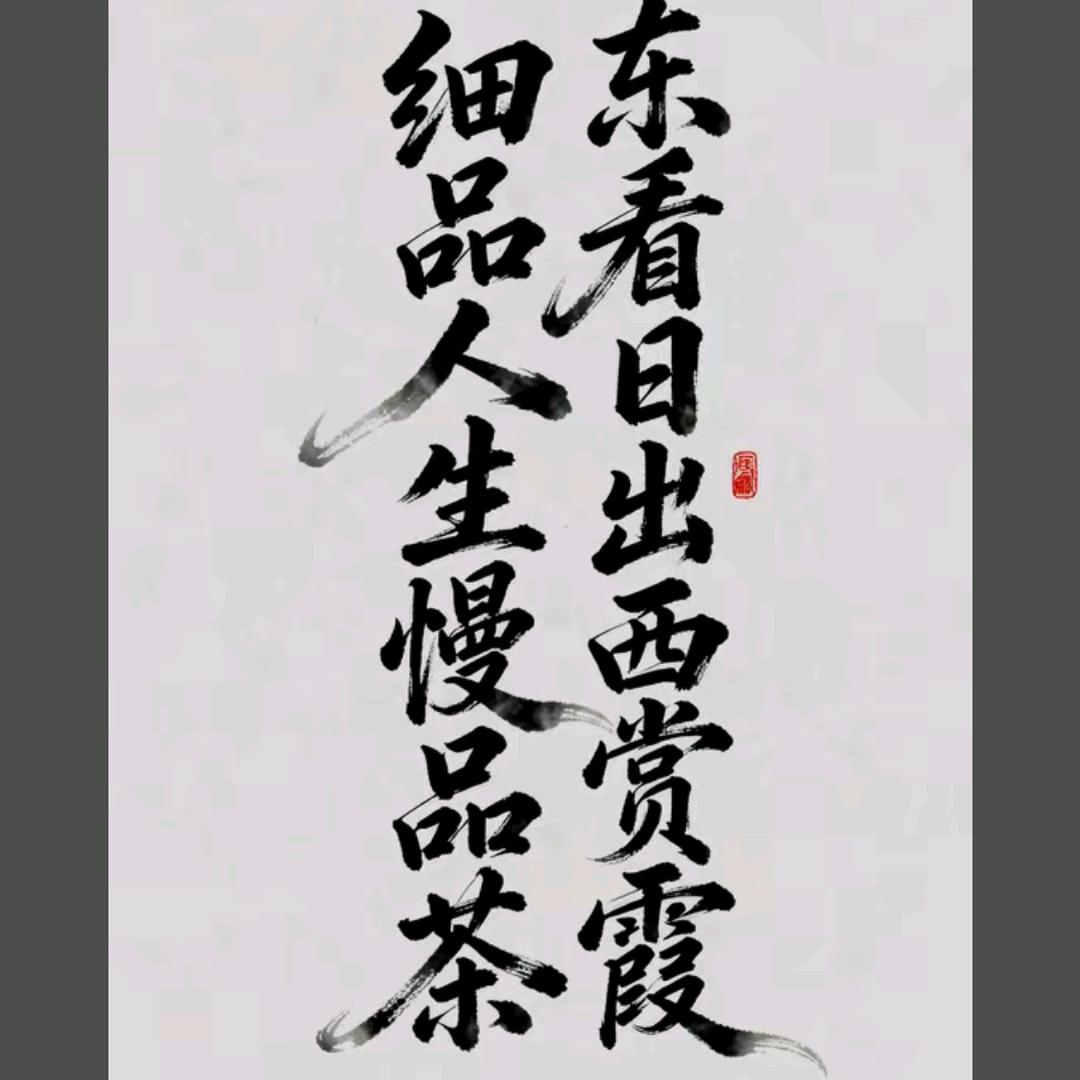 东看日出西赏霞
细品人生慢品茶